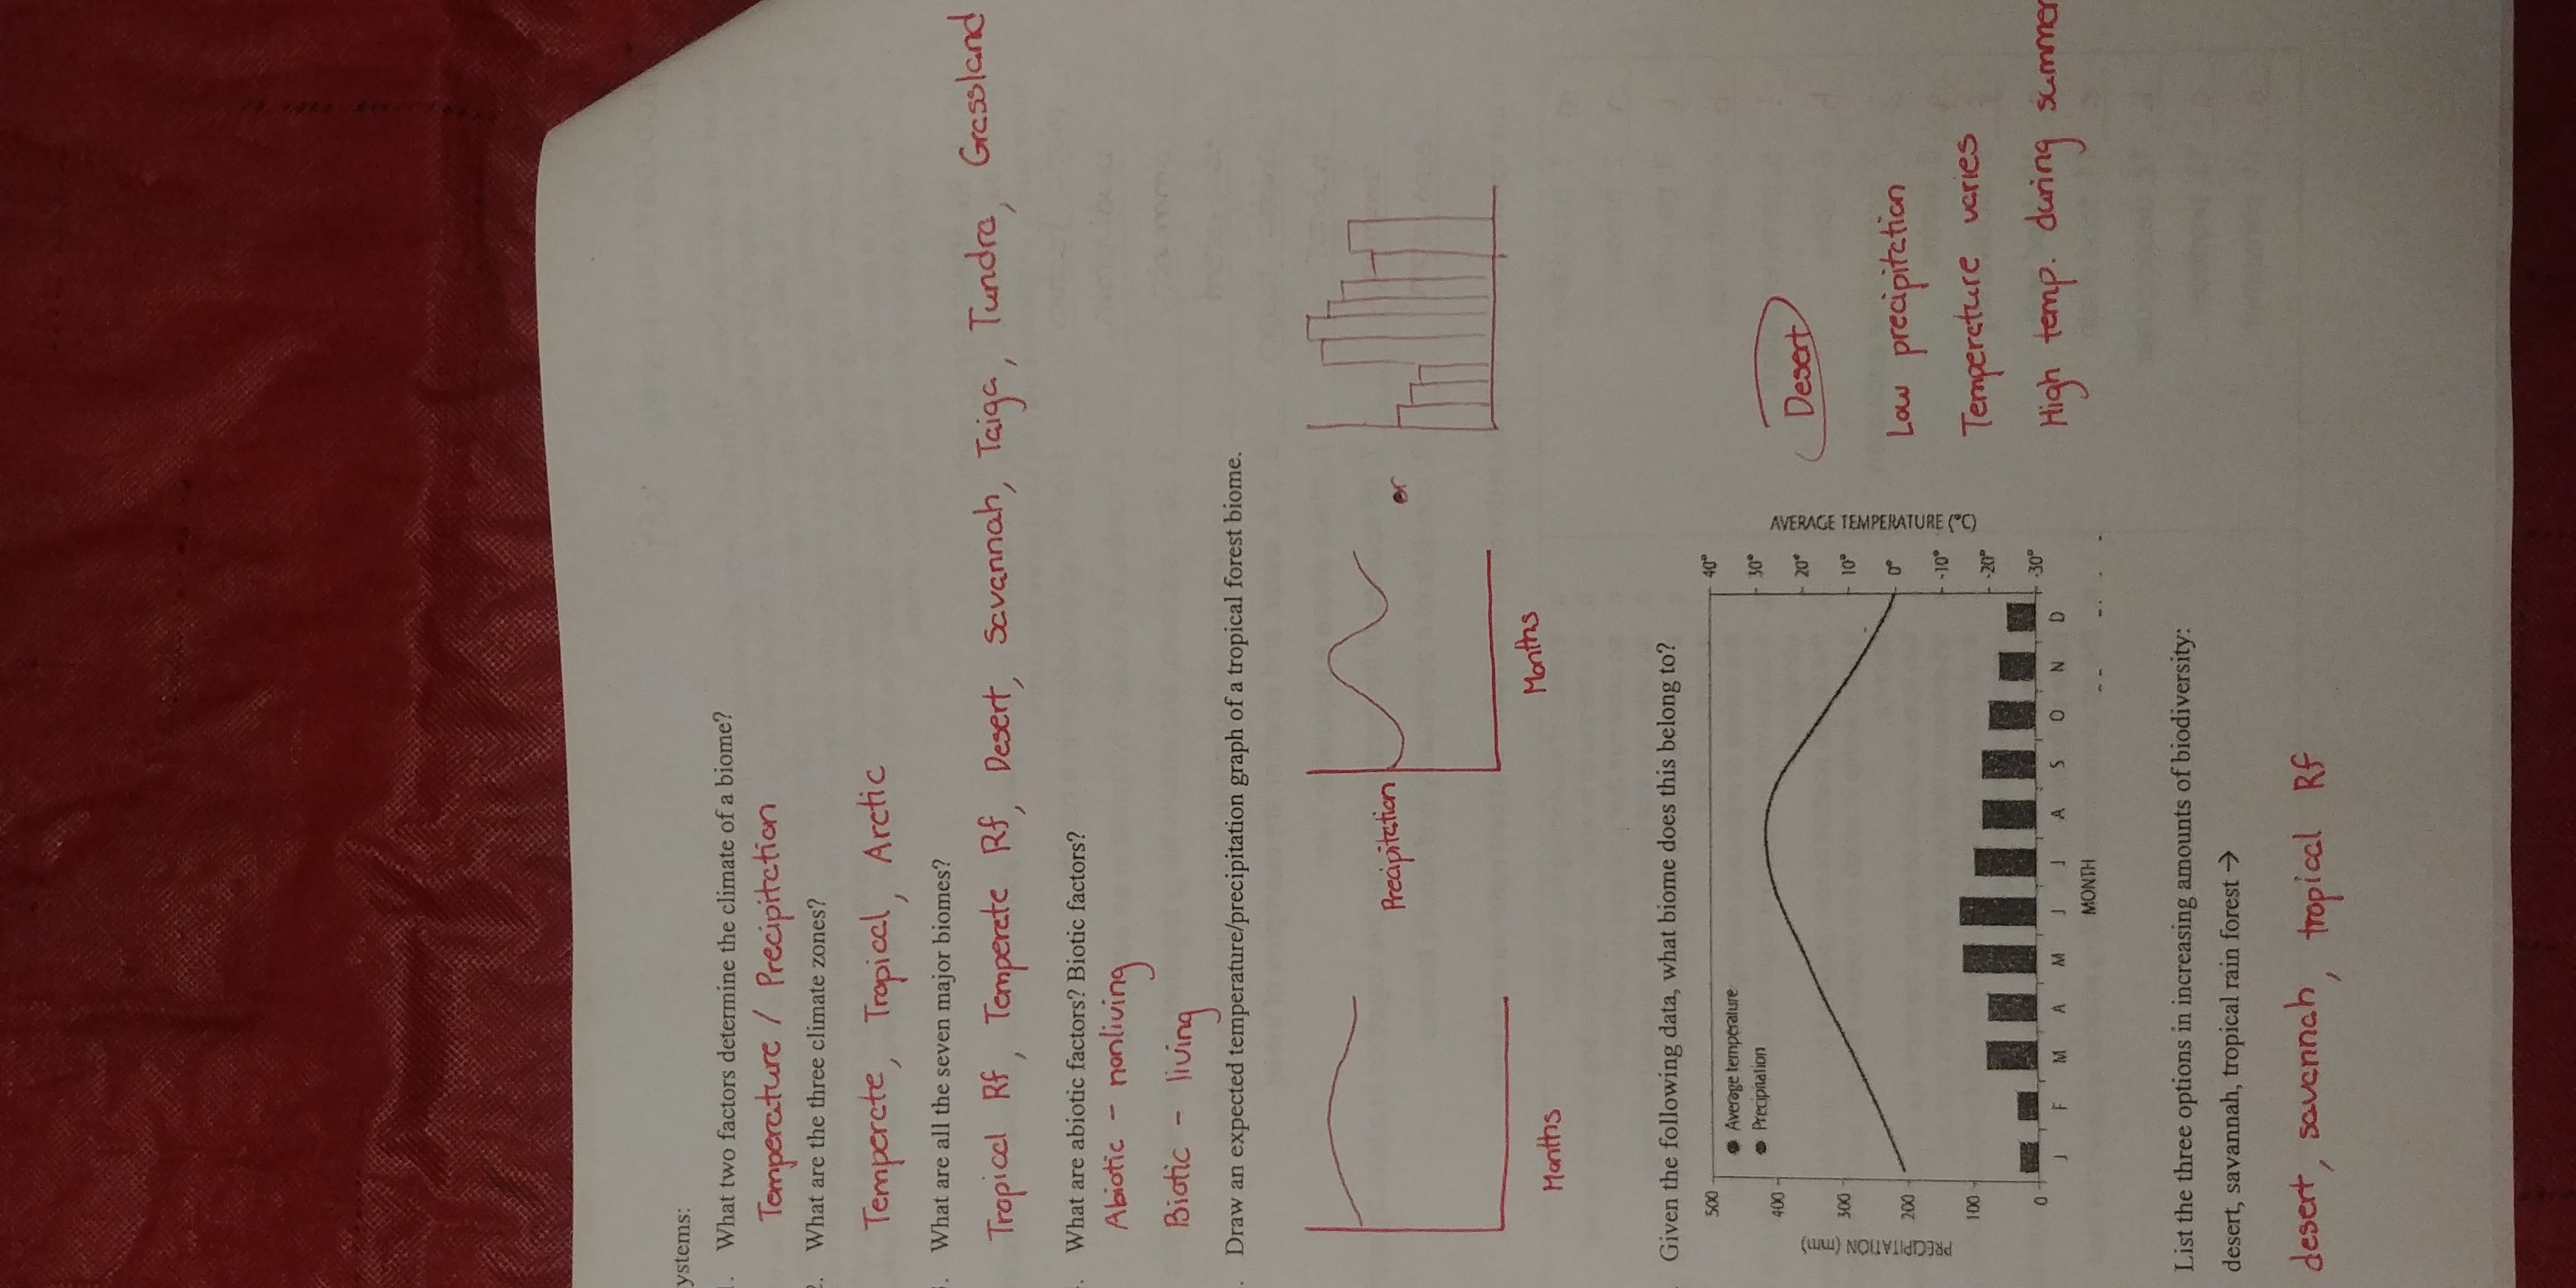 ystems:
1. What two factors determine the climate of a biome?
Temperature / Precipitation
2. What are the three climate zones?
Temperate, Tropical, Arctic
What are all the seven major biomes?
Tropical Rf, Temperate Rf, Desert, Savannah, Taiga, Tundra, Grassland
What are abiotic factors? Biotic factors?
Abiotic - nonliving
Biotic - living
Draw an expected temperature/precipitation graph of a tropical forest biome.
Precipitation
or
Months
Months
Given the following data, what biome does this belong to?
Average temperature
Precipitation
PRECIPITATION (mm)
500
400
300
200
100
0
40°
30°
20°
10°
0°
-10°
-20°
-30°
AVERAGE TEMPERATURE (°C)
J F M A M J J A S O N D
MONTH
Desert
Low precipitation
Temperature varies
High temp. during summer
List the three options in increasing amounts of biodiversity:
desert, savannah, tropical rain forest →
desert, savannah, tropical Rf